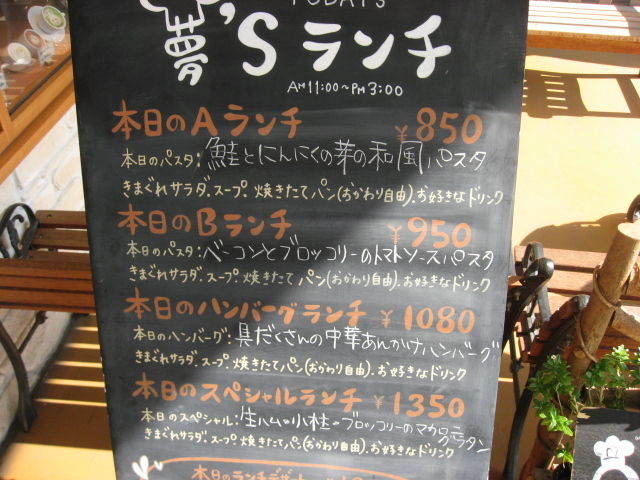 TODAY'S
夢'Sランチ
AM11:00~PM3:00
本日のAランチ ¥850
本日のパスタ:鮭とにんにくの芽の和風パスタ
きまぐれサラダ.スープ.焼きたてパン(おかわり自由).お好きなドリンク
本日のBランチ ¥950
本日のパスタ:ベーコンとブロッコリーのトマトソースパスタ
きまぐれサラダ.スープ.焼きたてパン(おかわり自由).お好きなドリンク
本日のハンバーグランチ ¥1080
本日のハンバーグ:具だくさんの中華あんかけハンバーグ
きまぐれサラダ.スープ.焼きたてパン(おかわり自由).お好きなドリンク
本日のスペシャルランチ ¥1350
本日のスペシャル:生ハム・小柱・ブロッコリーのマカロニグラタン
きまぐれサラダ.スープ.焼きたてパン(おかわり自由).お好きなドリンク
本日のランチデザート